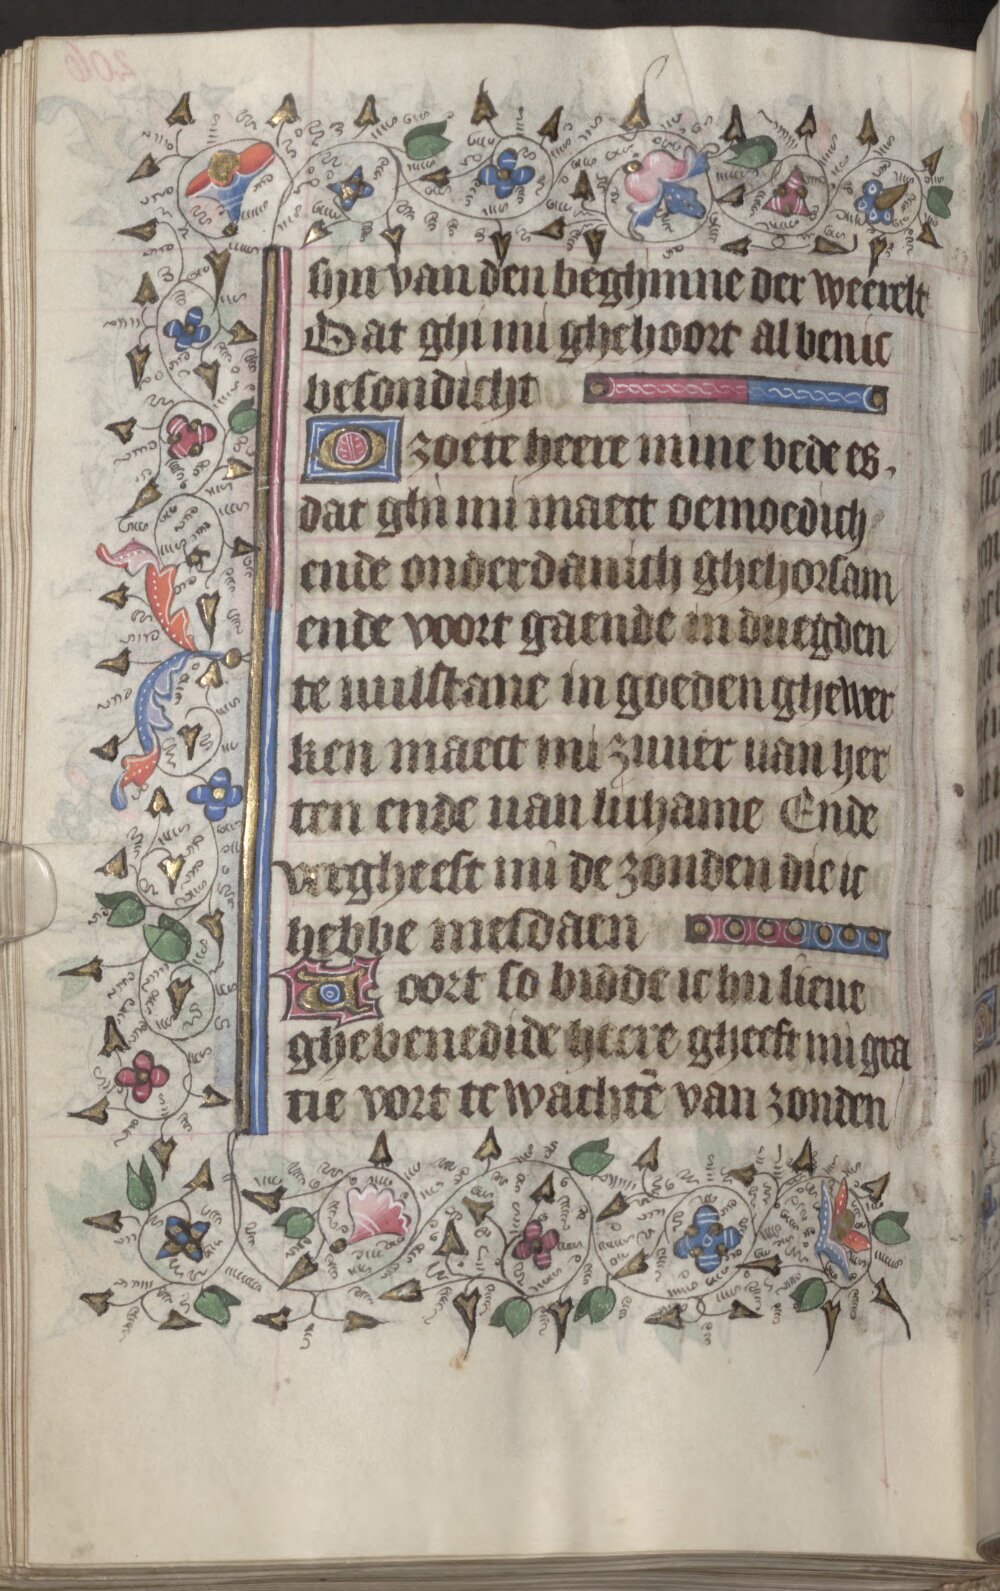 sijn van den beghinne der weerelt
Dat ghi mi ghehoort al ben ic
besondicht
O zoete heere mine bede es,
dat ghi mi maect oemoedich
ende onderdanich ghehorsam
ende voort gaende in duegden
te vulstane in goeden ghewer
ken maect mi zuuer van her
ten ende van lichame Ende
vergheeft mi de zonden die ic
hebbe mesdaen
Voort so bidde ic hu lieue
ghebenedide heere gheeft mi gra
tie vort te wachtē van zonden